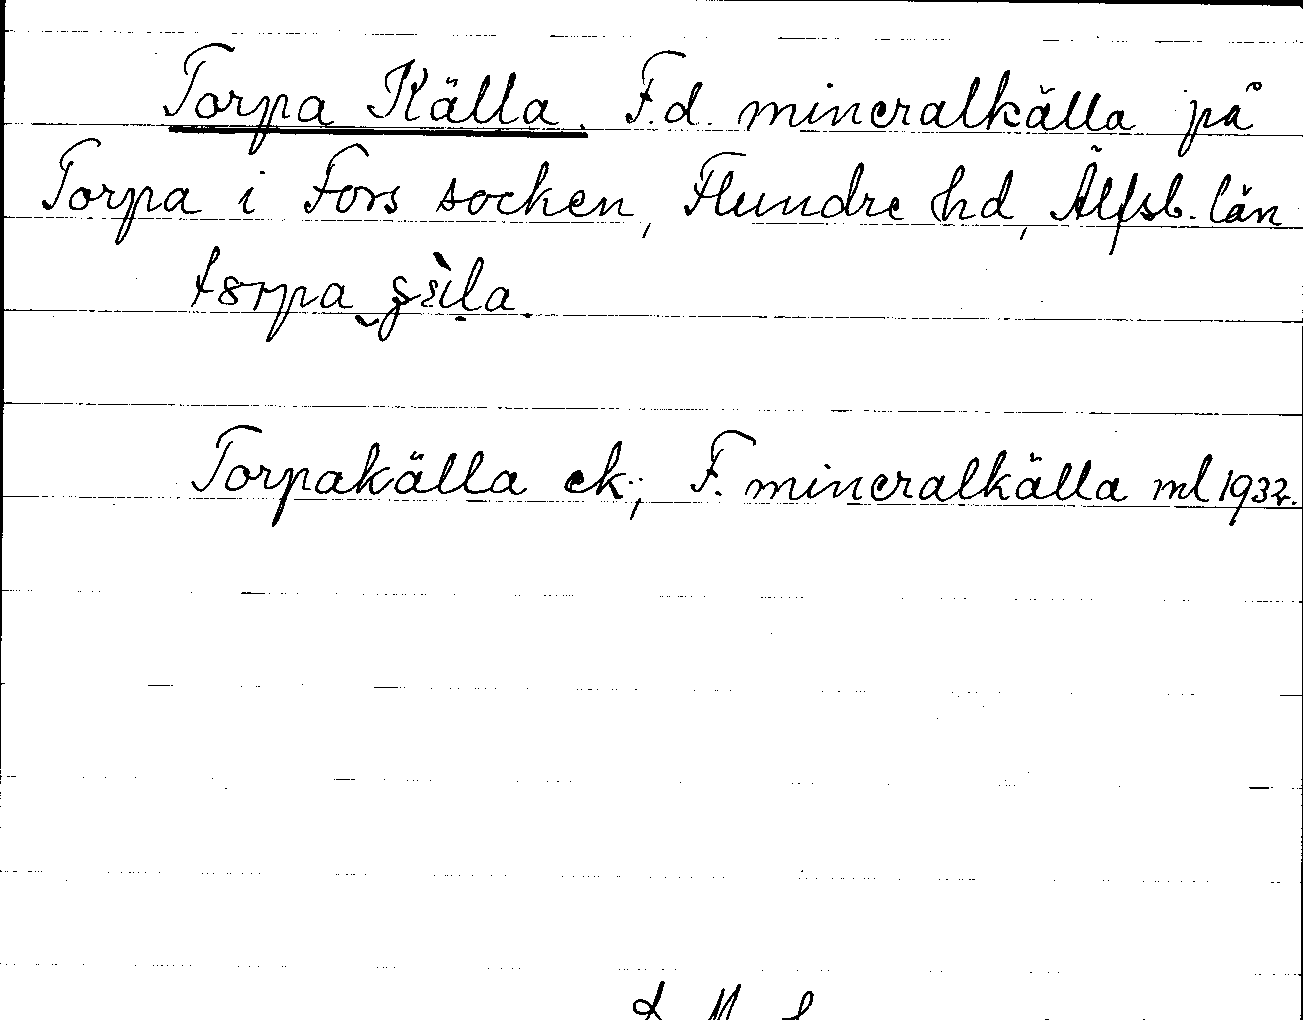 Torpa Källa. F.d. mineralkälla på
Torpa i Fors socken, Flundre hd, Älfsb. län
Torpakälla ek.; F. mineralkälla ml 1932.